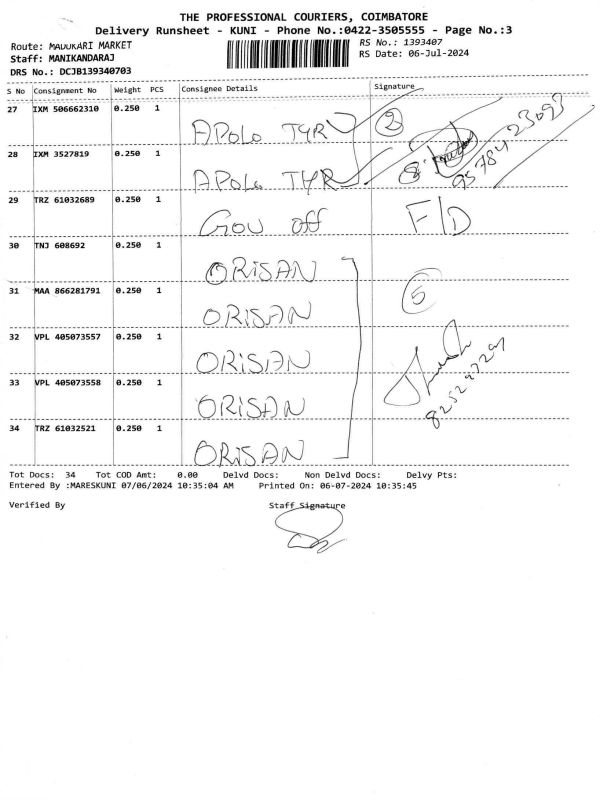 THE PROFESSIONAL COURIERS, COIMBATORE
Delivery Runsheet - KUNI - Phone No.:0422-3505555 - Page No.:3
Route: MADUKARI MARKET
RS No.: 1393407
Staff: MANIKANDARAJ
RS Date: 06-Jul-2024
DRS No.: DCJB139340703
S No Consignment No Weight PCS Consignee Details Signature
27 IXM 506662310 0.250 1 APOLO TYR 2
28 IXM 3527819 0.250 1 APOLO TYR
9578423093
29 TRZ 61032689 0.250 1 GOV off F/D
30 TNJ 608692 0.250 1 ORISAN
31 MAA 866281791 0.250 1 ORISAN 5
32 VPL 405073557 0.250 1 ORISAN
33 VPL 405073558 0.250 1 ORISAN
34 TRZ 61032521 0.250 1 ORISAN
Tot Docs: 34 Tot COD Amt: 0.00 Delvd Docs: Non Delvd Docs: Delvy Pts:
Entered By :MARESKUNI 07/06/2024 10:35:04 AM Printed On: 06-07-2024 10:35:45
Verified By Staff Signature